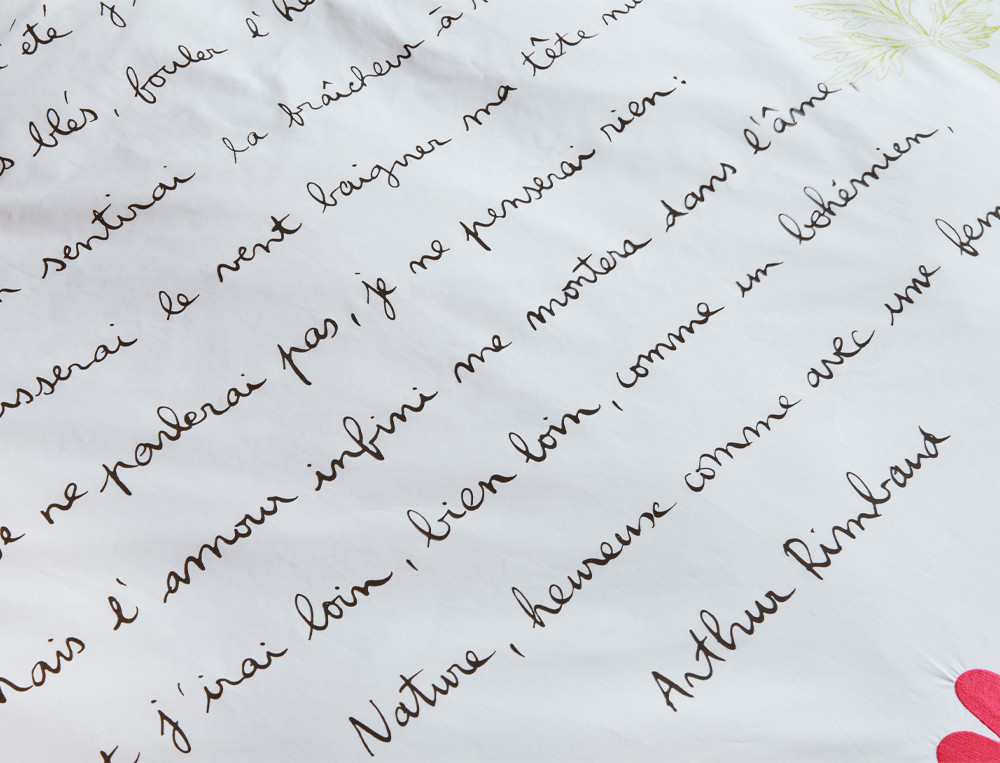 été j
s blés, fouler l'he
sentirai la fraîcheur à
isserai le vent baigner ma tête nu
e ne parlerai pas, je ne penserai rien:
Mais l'amour infini me montera dans l'âme,
t j'irai loin, bien loin, comme un bohémien,
Nature, heureuse comme avec une fem
Arthur Rimbaud